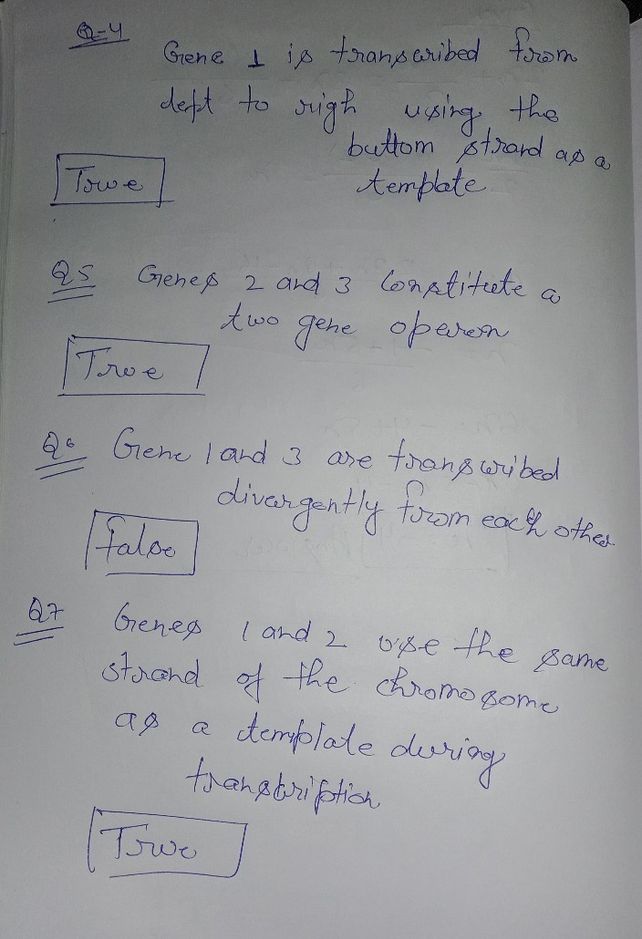 Q-4
Gene 1 is transcribed from
left to righ using the
buttom strand as a
template
True
Q5 Genes 2 and 3 Constitute a
two gene operon
True
Q6 Gene 1 and 3 are transcribed
divergently from each other
false
Q7 Genes 1 and 2 use the same
strand of the chromosome
as a template during
transcription
True